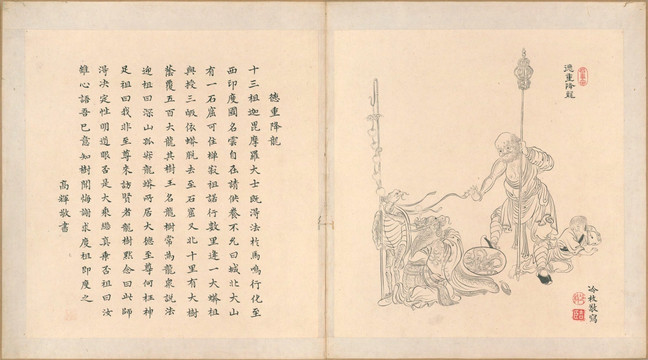 德重降龍
十三祖迦毘摩羅大士既得法於馬鳴行化至
西印度國名雲自在請供養不允曰城北大山
有一石窟可住禪寂祖諾行數里逢一大蟒祖
與授三皈依蟒脫去至石窟又北十里有大樹
蔭覆五百大龍其樹王名龍樹常為龍眾說法
迎祖曰深山孤寂龍蟒所居大德至尊何枉神
足祖曰我非至尊來訪賢者龍樹默念曰此師
得決定性明道眼否是大乘繼真乘否祖曰汝
雖心語吾已意知樹聞悔謝求度祖即度之
高輝敬書
德重降龍
冷枚敬寫